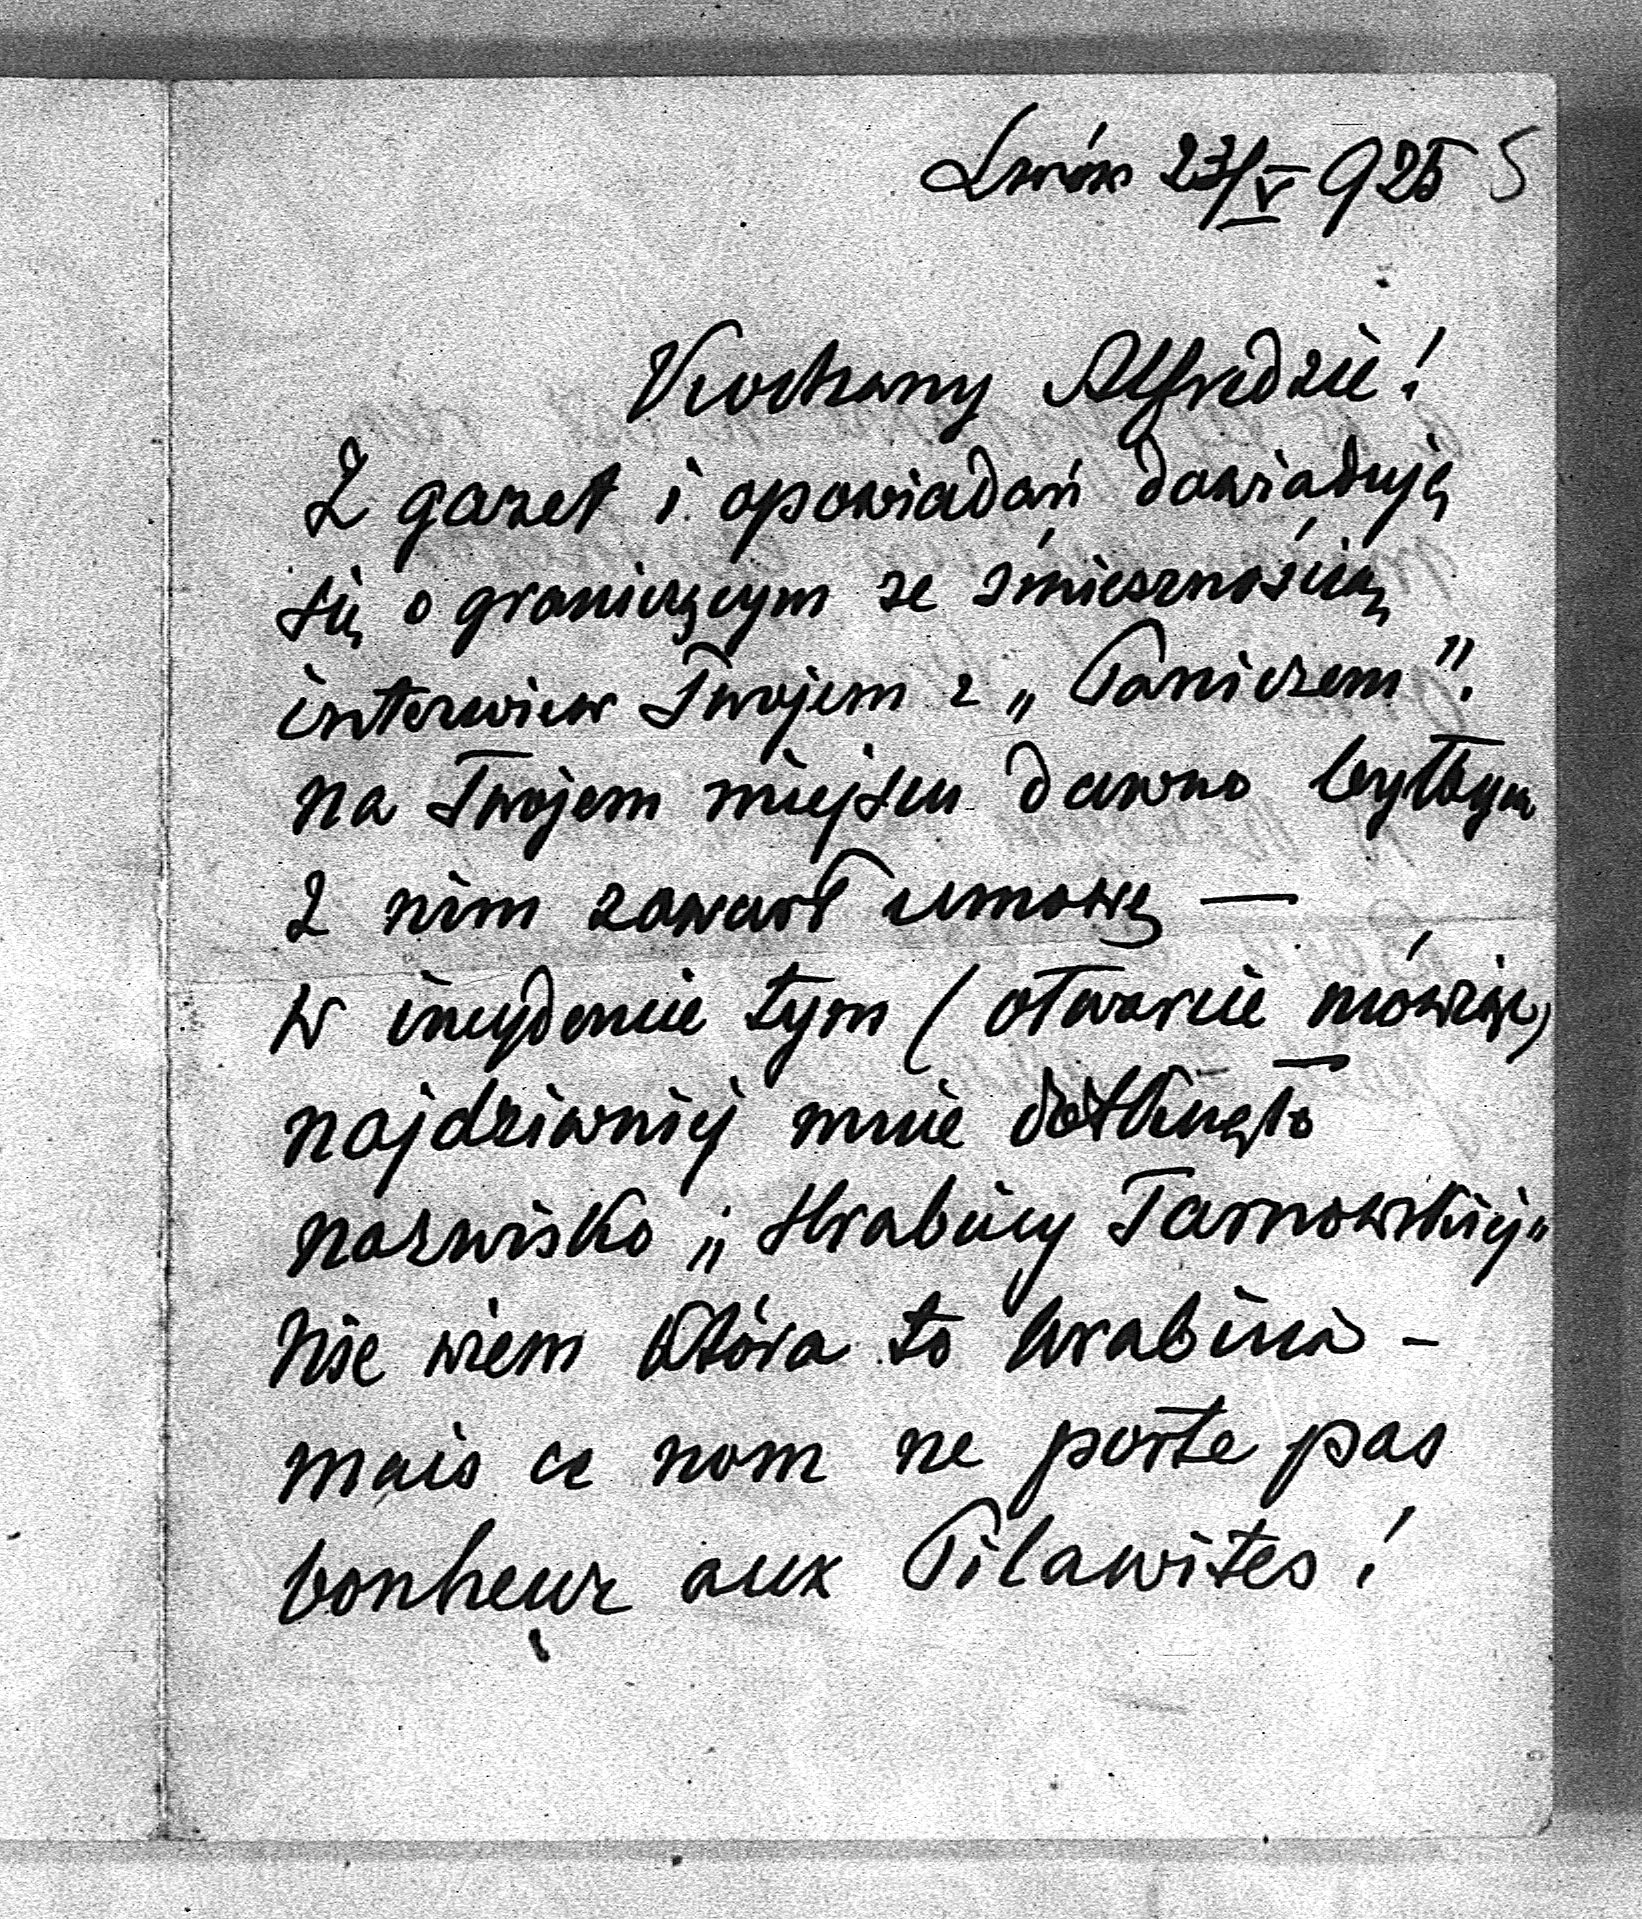 Lwów 23/V 925 5
Kochany Alfredzie!
Z gazet i opowiadań dowiaduję
się o graniczącym ze śmiesznością
interwiew Twojem z „Paniczem".
na Twojem miejscu dawno byłbym
z nim zawarł umowę —
W incydencie tym (otwarcie mówiąc)
najdziwniej mnie dotknęło
nazwisko „Hrabiny Tarnowskiej"
Nie wiem która to hrabina -
mais ce nom ne porte pas
bonheur aux Pilawites!